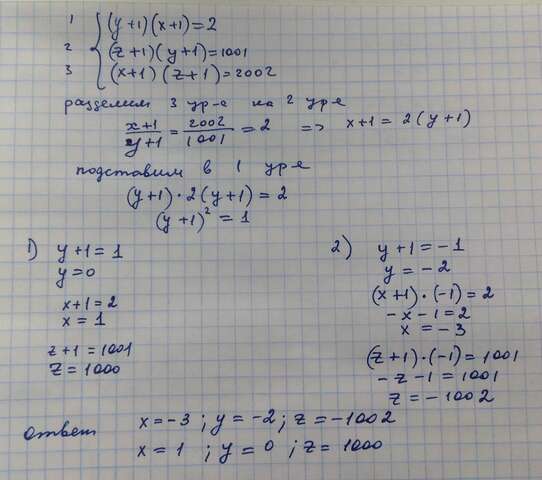 1 (y+1)(x+1)=2
2 (z+1)(y+1)=1001
3 (x+1)(z+1)=2002
разделим 3 ур-е на 2 ур-е
x+1/y+1 = 2002/1001 = 2 => x+1 = 2(y+1)
подставим в 1 ур-е
(y+1)·2(y+1)=2
(y+1)²=1
1) y+1=1
y=0
x+1=2
x=1
z+1=1001
z=1000
2) y+1=-1
y=-2
(x+1)·(-1)=2
-x-1=2
x=-3
(z+1)·(-1)=1001
-z-1=1001
z=-1002
ответ x=-3; y=-2; z=-1002
x=1; y=0; z=1000